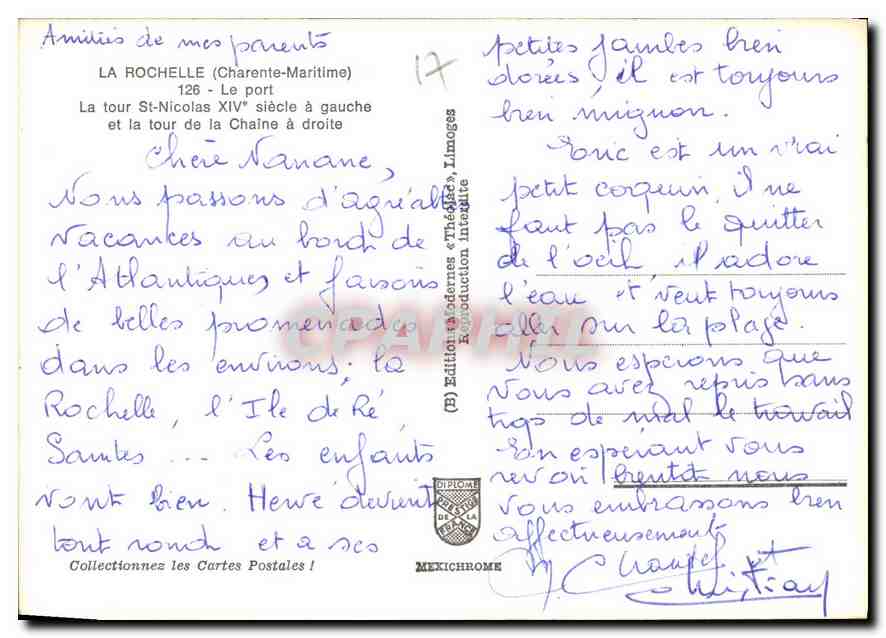 Amitiés de mes parents
LA ROCHELLE (Charente-Maritime)
126 - Le port
La tour St-Nicolas XIVe siècle à gauche
et la tour de la Chaîne à droite
17
Chère Nanane,
Nous passons d'agréable
vacances au bord de
l'Atlantiques et faisons
de belles promenades
dans les environs; la
Rochelle, l'Ile de Ré
Saintes ... Les enfants
vont bien. Hervé devient
tout rond et a ses
Collectionnez les Cartes Postales !
(B) Editions Modernes «Théojac», Limoges
Reproduction interdite
DIPLOME
PRESTIGE
DE LA
FRANCE
MEXICHROME
petites jambes bien
dorées, il est toujours
bien mignon.
Eric est un vrai
petit coquin, il ne
faut pas le quitter
de l'oeil, il adore
l'eau et veut toujours
aller sur la plage.
Nous espérons que
vous avez repris sans
trop de mal le travail
En espérant vous
revoir bientôt nous
vous embrassons bien
affectueusement
Chantal et
Christian
CPARAMA